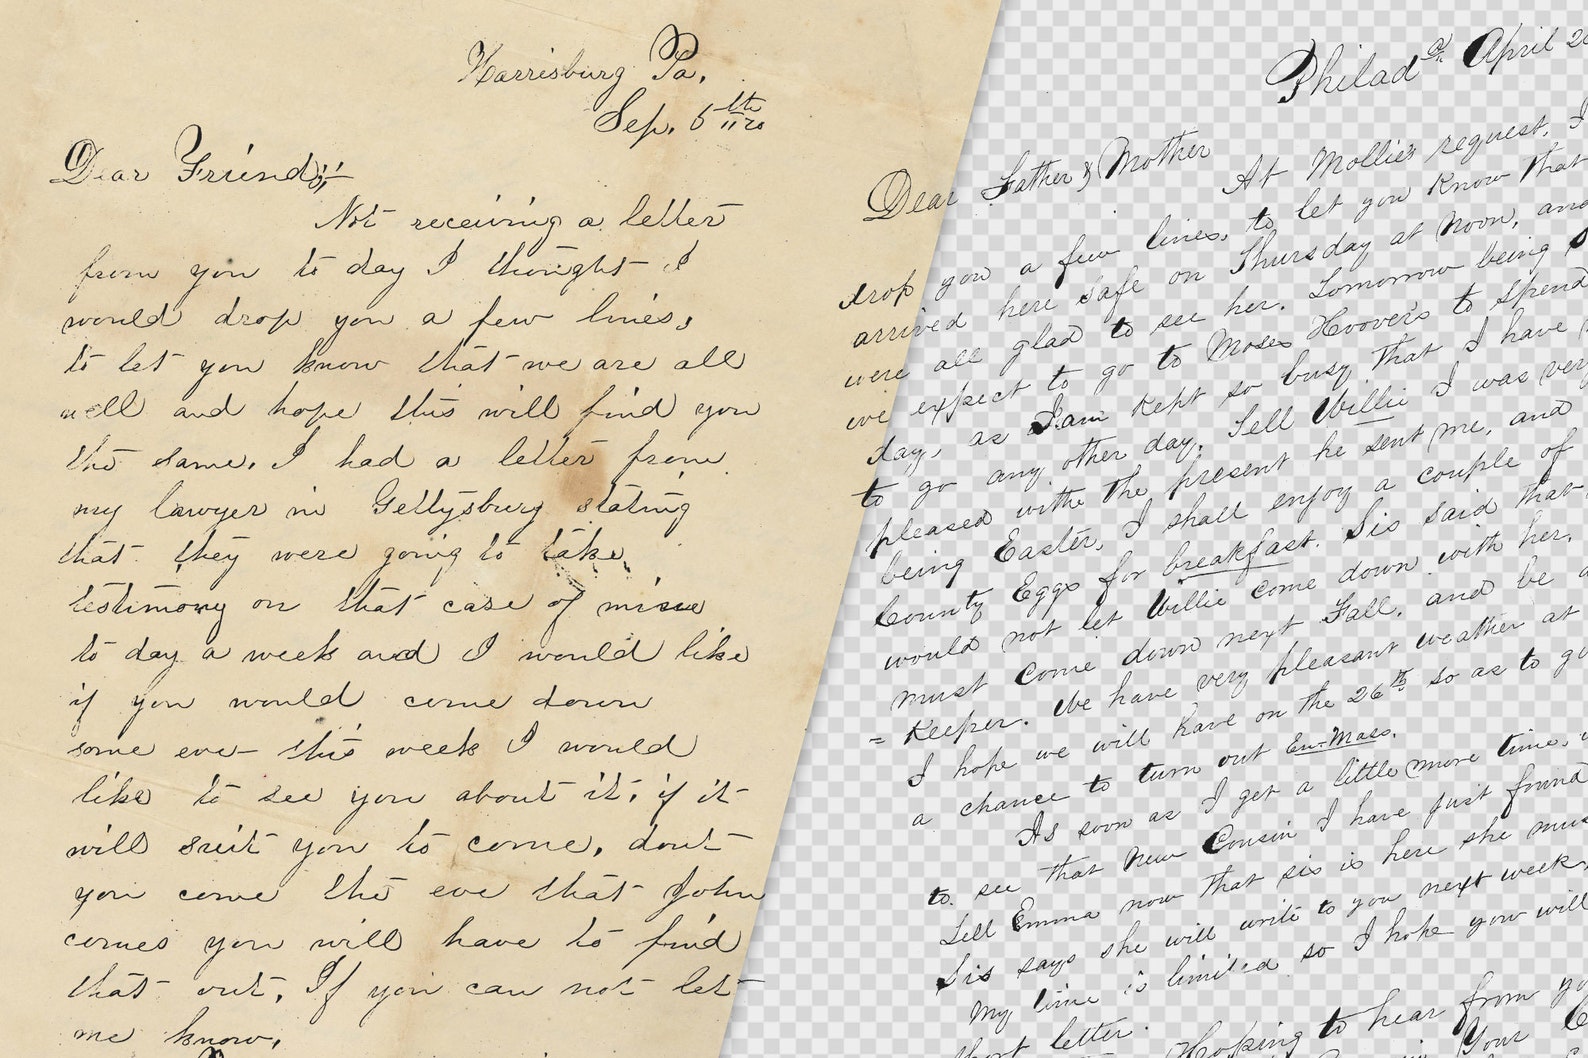 Harrisburg Pa.
Sep. 5th
Dear Friend;
Not receiving a letter
from you to day I thought I
would drop you a few lines,
to let you know that we are all
well and hope this will find you
the same. I had a letter from
my lawyer in Gettysburg stating
that they were going to take
testimony on that case of mine
to day a week and I would like
if you would come down
some eve this week I would
like to see you about it, if it
will suit you to come, dont
you come the eve that John
comes you will have to find
that out, If you can not let
me know,
Philada April
Dear Father & Mother
At Mollie's request, I
drop you a few lines, to let you Know that
arrived here safe on Thursday at Noon, and
were all glad to see her. Tomorrow being
we expect to go to Moses Hoover's to spend
day, as I am Kept so busy that I have
to go any other day. Tell Willie I was very
pleased withe the present he sent me, and
being Easter, I shall enjoy a couple of
County Eggs for breakfast. Sis said that
would not let Willie come down with her,
must Come down next Fall, and be a
= Keeper. We have very pleasant weather at
I hope we will have on the 26th so as to go
a chance to turn out En-Mass.
As soon as I get a little more time,
to see that New Cousin I have just found
Tell Emma now that sis is here she must
Sis says she will write to you next week,
My time is limited so I hope you will
short letter.
Hoping to hear from you
Your